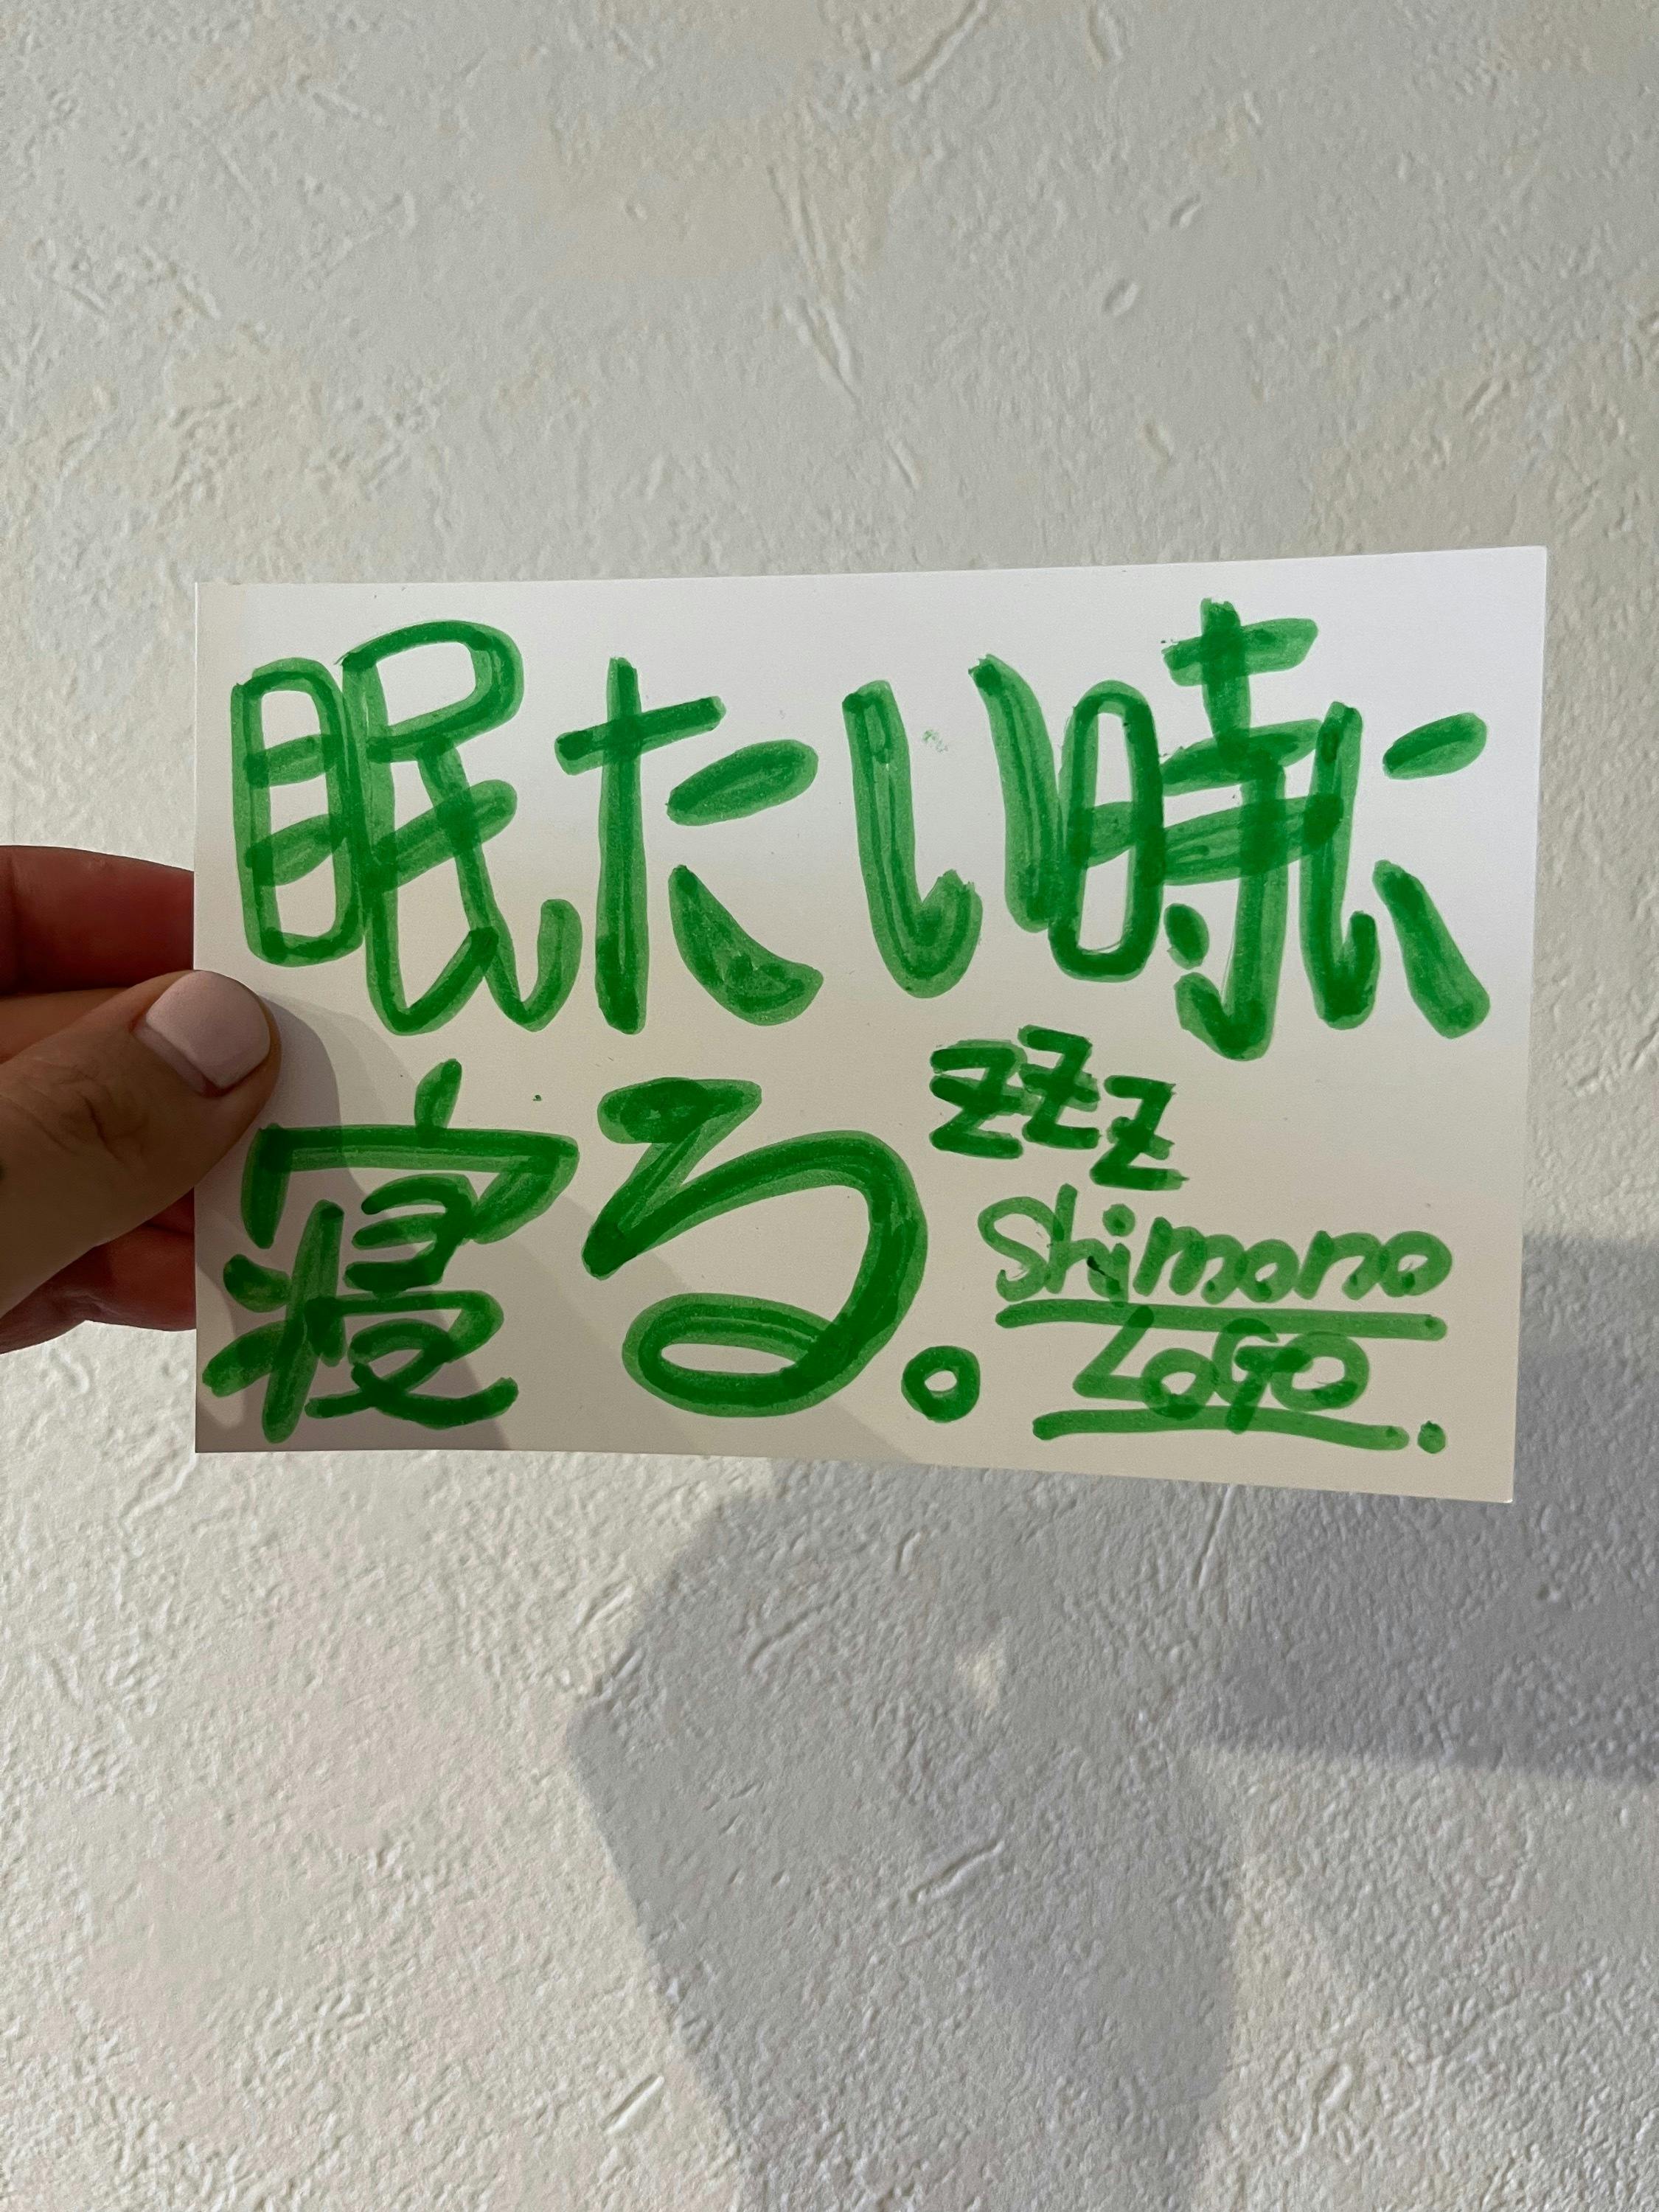 眠たい時に
寝る。
zzz
Shimono
LoGo.